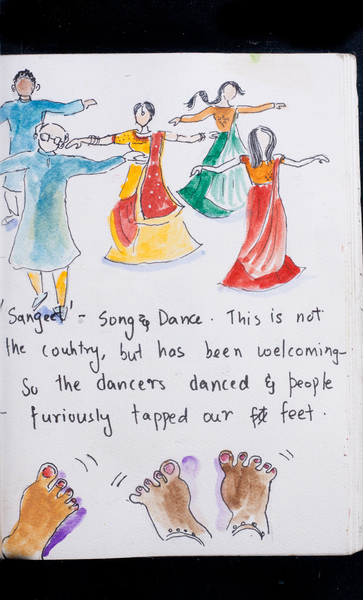 'Sangeet' - Song & Dance. This is not
the country, but has been welcoming-
So the dancers danced & people
- furiously tapped our feet.